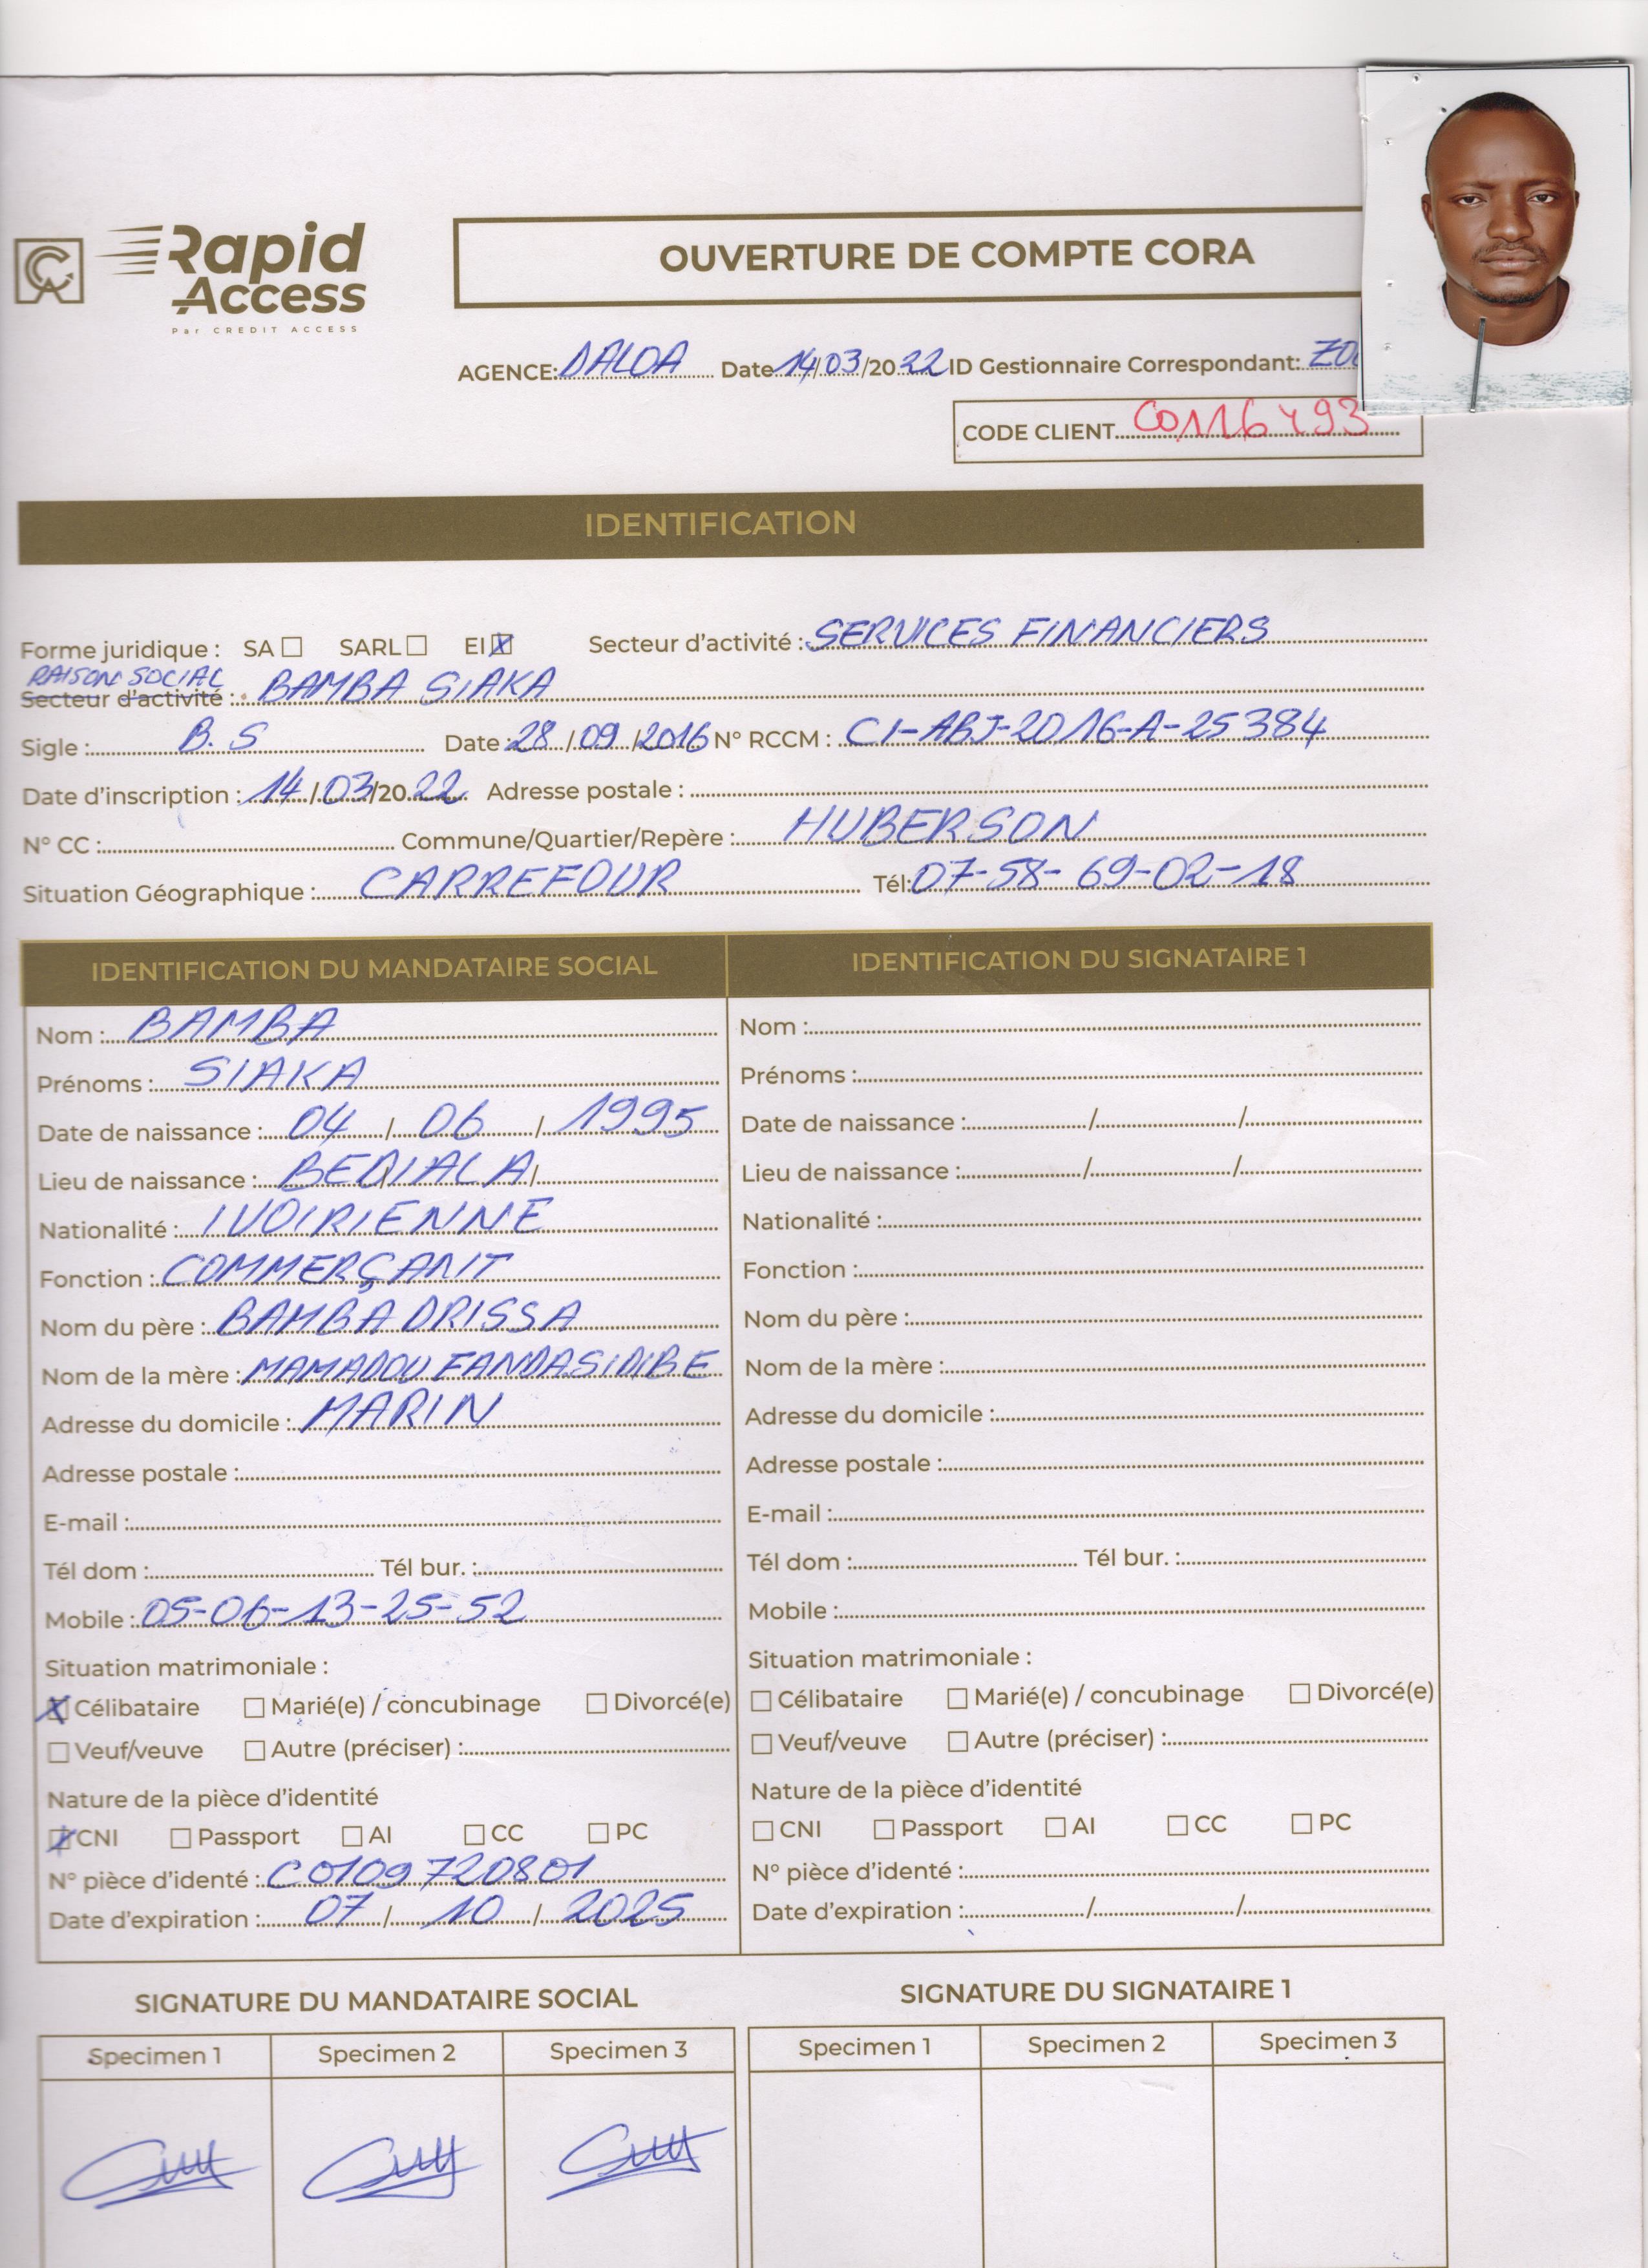 Rapid
Access
Par CREDIT ACCESS
OUVERTURE DE COMPTE CORA
AGENCE: DALOA Date 14/03/2022 ID Gestionnaire Correspondant:
CODE CLIENT C0116493
IDENTIFICATION
Forme juridique : SA SARL EI X Secteur d'activité : SERVICES FINANCIERS
RAISON SOCIAL
Secteur d'activité : BAMBA SIAKA
Sigle : B.S Date : 28/09/2016 N° RCCM : CI-ABJ-2016-A-25384
Date d'inscription : 14/03/2022 Adresse postale :
N° CC : Commune/Quartier/Repère : HUBERSON
Situation Géographique : CARREFOUR Tél: 07-58-69-02-18
IDENTIFICATION DU MANDATAIRE SOCIAL
Nom : BAMBA
Prénoms : SIAKA
Date de naissance : 04 / 06 / 1995
Lieu de naissance : BEDIALA
Nationalité : IVOIRIENNE
Fonction : COMMERÇANT
Nom du père : BAMBA DRISSA
Nom de la mère : MAMADOU FANDASIDIBE
Adresse du domicile : MARIN
Adresse postale :
E-mail :
Tél dom : Tél bur. :
Mobile : 05-06-13-25-52
Situation matrimoniale :
X Célibataire Marié(e) / concubinage Divorcé(e)
Veuf/veuve Autre (préciser) :
Nature de la pièce d'identité
CNI Passport AI CC PC
N° pièce d'identé : C0109720801
Date d'expiration : 07 / 10 / 2025
IDENTIFICATION DU SIGNATAIRE 1
Nom :
Prénoms :
Date de naissance : / /
Lieu de naissance : / /
Nationalité :
Fonction :
Nom du père :
Nom de la mère :
Adresse du domicile :
Adresse postale :
E-mail :
Tél dom : Tél bur. :
Mobile :
Situation matrimoniale :
Célibataire Marié(e) / concubinage Divorcé(e)
Veuf/veuve Autre (préciser) :
Nature de la pièce d'identité
CNI Passport AI CC PC
N° pièce d'identé :
Date d'expiration : / /
SIGNATURE DU MANDATAIRE SOCIAL
Specimen 1 Specimen 2 Specimen 3
SIGNATURE DU SIGNATAIRE 1
Specimen 1 Specimen 2 Specimen 3